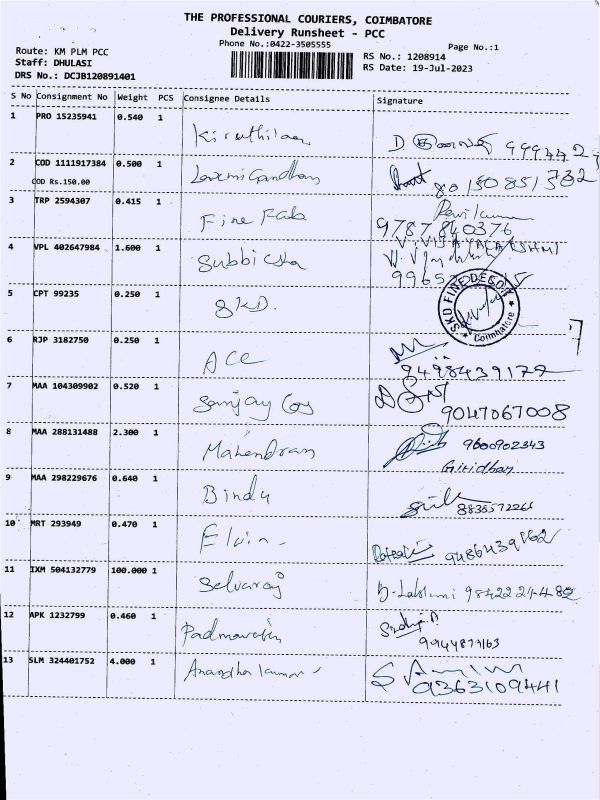 THE PROFESSIONAL COURIERS, COIMBATORE
Delivery Runsheet - PCC
Phone No.:0422-3505555
Page No.:1
Route: KM PLM PCC
Staff: DHULASI
DRS No.: DCJB120891401
RS No.: 1208914
RS Date: 19-Jul-2023
S No Consignment No Weight PCS Consignee Details Signature
1 PRO 15235941 0.540 1
2 COD 1111917384 0.500 1 Laxmi Gandhan
COD Rs.150.00
3 TRP 2594307 0.415 1 Fine Fab
9787840376
4 VPL 402647984 1.600 1 Subbicsha V. VIJAYALAKSHMI
5 CPT 99235 0.250 1 SKD. SKD FINE DECOR Coimbatore
6 RJP 3182750 0.250 1 ACE
9498439177
7 MAA 104309902 0.520 1 Sanjay
9047067008
8 MAA 288131488 2.300 1 Mahendran 9600902343
Giridhan
9 MAA 298229676 0.640 1 Bindu
10 MRT 293949 0.470 1
11 IXM 504132779 100.000 1 Selvaraj
12 APK 1232799 0.460 1 Padmavathi
13 SLM 324401752 4.000 1 Anandha kumar
9363109441